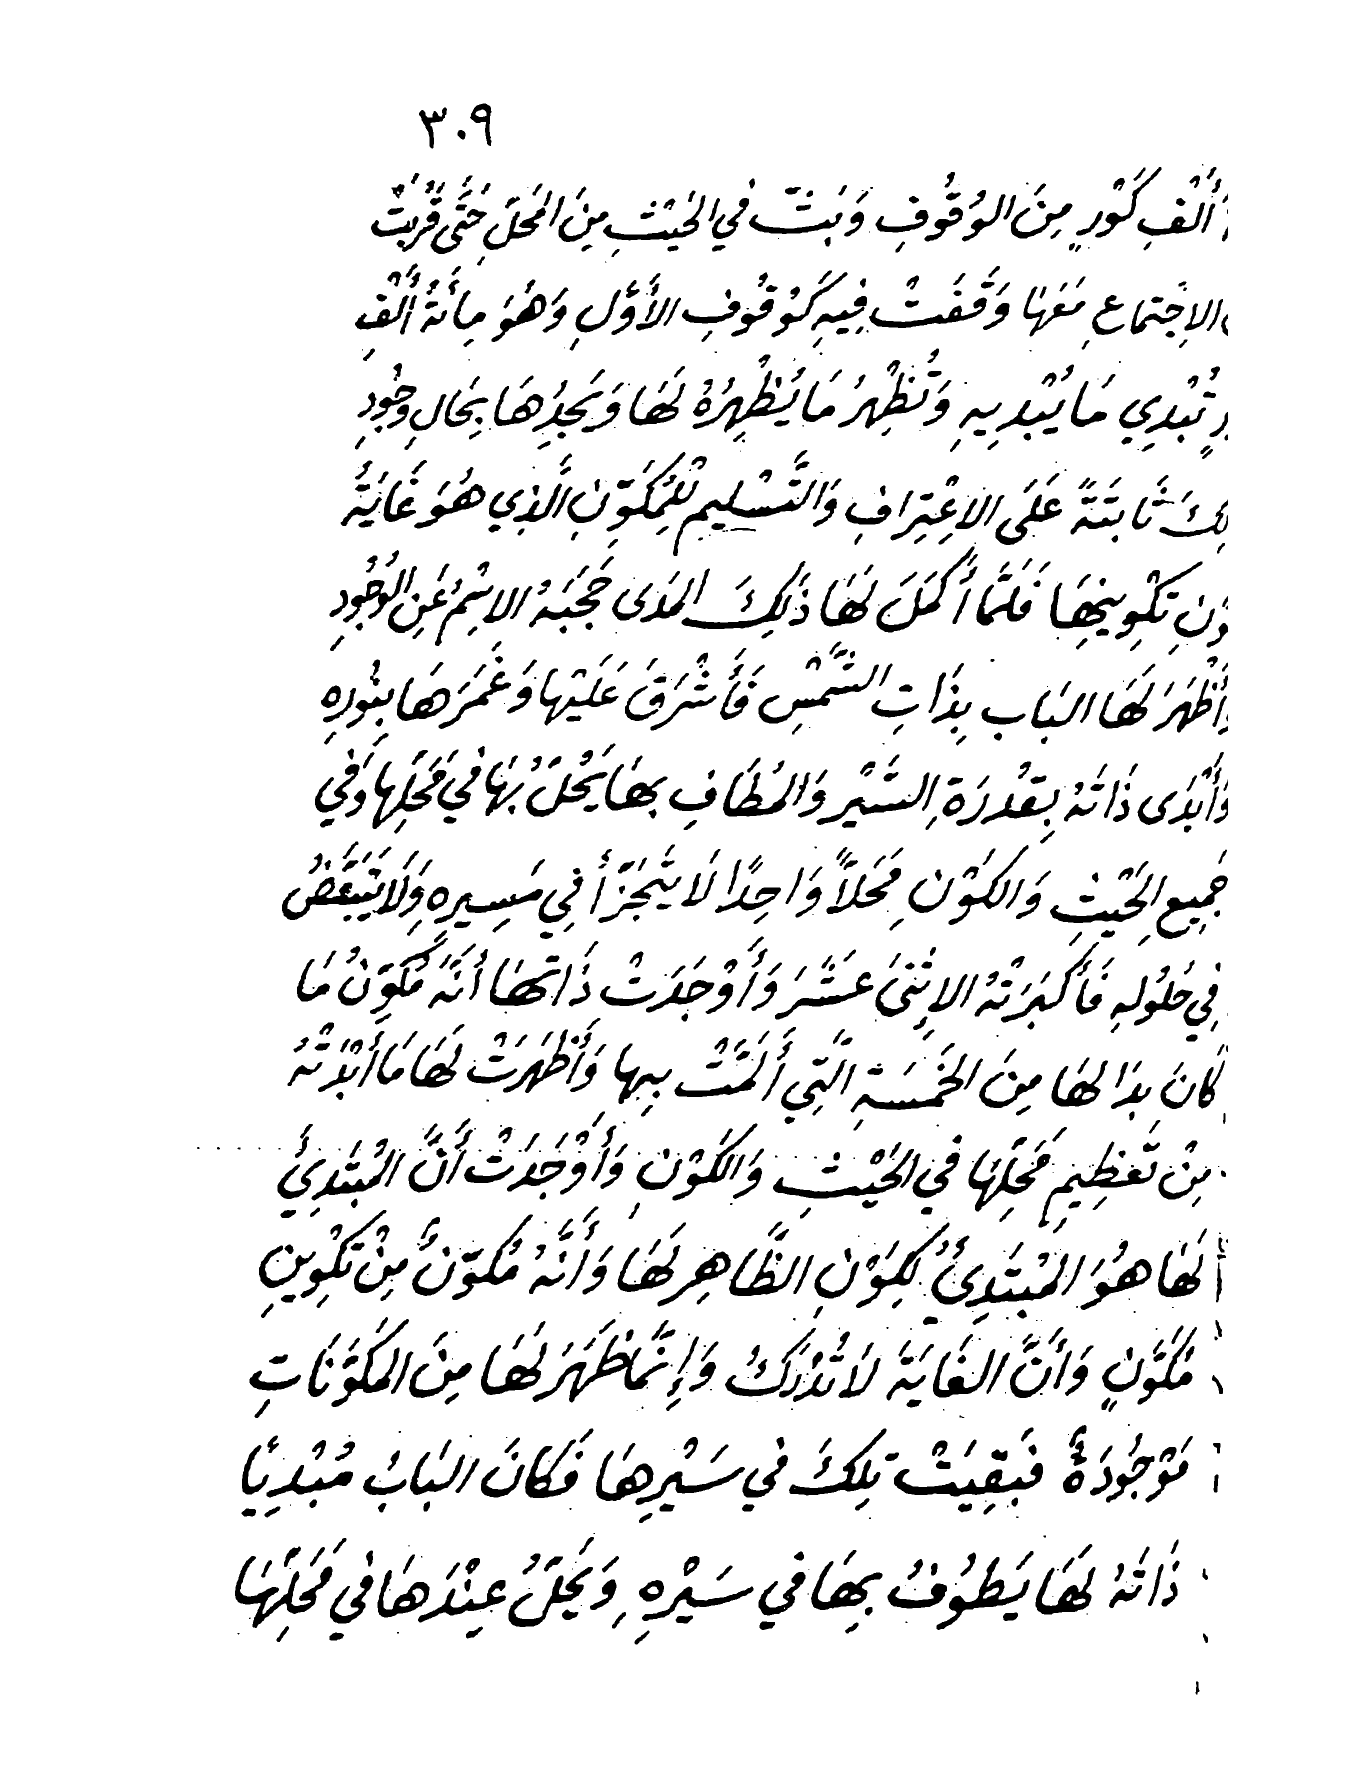 ٣٠٩
أَلْفِ كَوْرٍ مِنَ الوُقُوفِ وَبَنَتْ في الحَيْثِ مِنَ المَحَلِّ حَتَّى قَرُبَتْ
الاِجْتِماعِ مَعَهَا وَقَفَتْ فِيهِ كَوُقُوفِ الأَوَّلِ وَهُوَ مِأَةُ أَلْفِ
تُبْدِي مَا يُبْدِيهِ وَتُظْهِرُ مَا يُظْهِرُهُ لَهَا وَيَجِدُهَا بِحَالِ وُجُودِ
ثَابِتَةً عَلَى الاِعْتِرَافِ وَالتَّسْلِيمِ لِلْمُكَوِّنِ الَّذِي هُوَ غَايَةُ
تَكْوِينِهَا فَلَمَّا أَكْمَلَ لَهَا ذَلِكَ المَدَى حَجَبَهُ الاِسْمُ عَنِ الوُجُودِ
وَأَظْهَرَ لَهَا البَاب بِذَاتِ الشَّمْسِ فَأَشْرَقَ عَلَيْهَا وَغَمَرَهَا بِنُورِهِ
وَأَبْدَى ذَاتَهُ بِقُدْرَةِ السَّيْرِ وَالمُطَافِ بِهَا يَحُلُّ بِهَا في مَحَلِّهَا وَفي
جَمِيعِ الحَيْثِ وَالكَوْنِ مَحَلاًّ وَاحِدًا لاَ يَتَجَزَّأُ فِي مَسِيرِهِ وَلاَ يَتَبَعَّضُ
فِي حُلُولِهِ فَأَكْبَرَتْهُ الاِثْنَى عَشَرَ وَأَوْجَدَتْ ذَاتهَا أَنَّهُ مُكَوِّنُ مَا
كَانَ بَدَا لهَا مِنَ الخَمْسَةِ الَّتِي أَلَمَّتْ بِهِا وَأَظْهَرَتْ لَهَا مَا أَبْدَتْهُ
مِنْ تَعْظِيمِ مَحَلِّهَا في الحَيْثِ وَالكَوْنِ وَأَوْجَدَتْ أَنَّ المُبْتَدِئَ
لَهَا هُوَ المُبْتَدِئُ لِكَوْنِ الظَّاهِرِ لَهَا وَأَنَّهُ مُكَوِّنٌ مِنْ تَكْوِينِ
مُكَوَّنٍ وَأَنَّ الغَايَةَ لاَ تُدْرَكُ وَإِنَّمَا ظَهَرَ لَهَا مِنَ المُكَوَّنَاتِ
مَوْجُودَةٌ فَبَقِيَتْ تِلكَ في سَيْرِهَا فَكَانَ البَابُ مُبْدِيًا
ذَاتَهُ لَهَا يَطُوفُ بِهَا في سَيْرِهِ وَيَحُلُّ عِنْدَهَا في مَحَلِّهَا